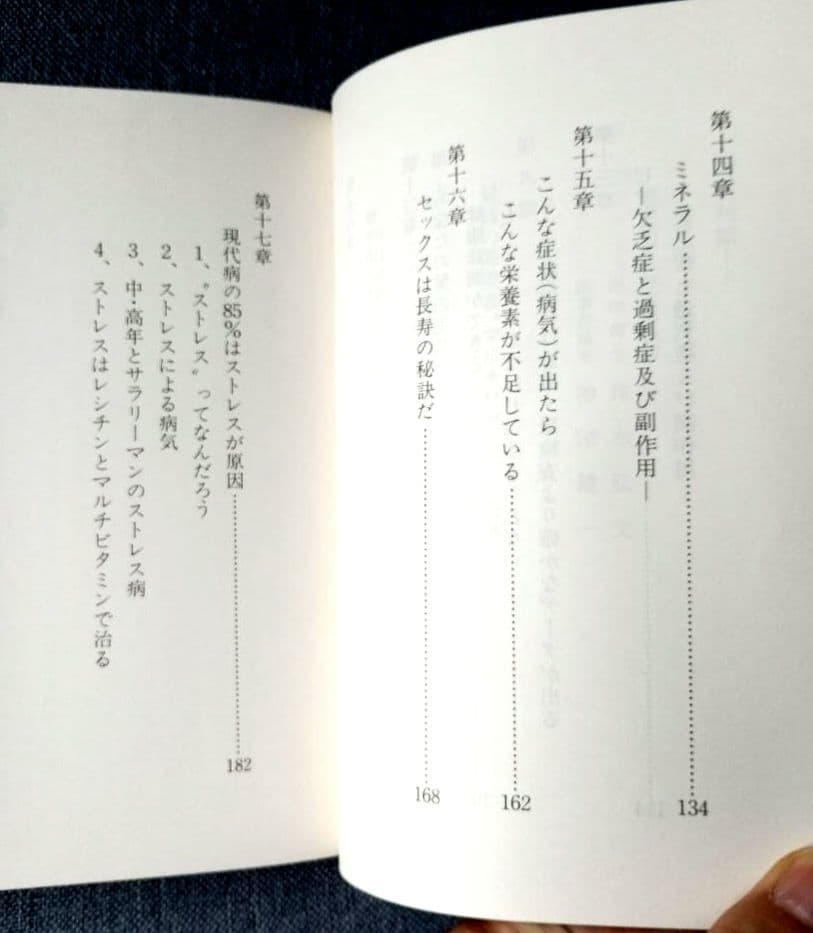 第十四章
ミネラル……………………………134
―欠乏症と過剰症及び副作用―
第十五章
こんな症状(病気)が出たら
こんな栄養素が不足している……………………………162
第十六章
セックスは長寿の秘訣だ……………………………168
第十七章
現代病の85%はストレスが原因……………………………182
1、〝ストレス〟ってなんだろう
2、ストレスによる病気
3、中・高年とサラリーマンのストレス病
4、ストレスはレシチンとマルチビタミンで治る